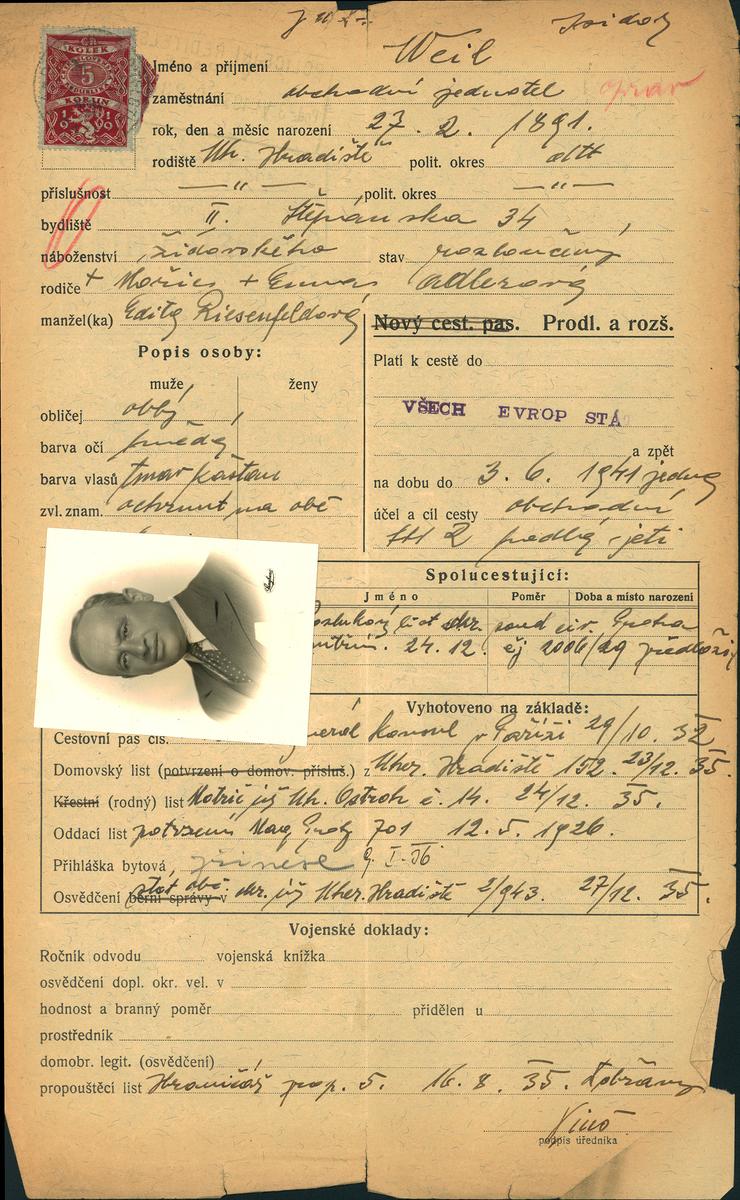 Isidor
Weil
ČR
KOLEK
5
KORUN
Jméno a příjmení
zaměstnání obchodní jednatel oprav
rok, den a měsíc narození 27. 2. 1891.
rodiště Uh. Hradiště polit. okres dtto
příslušnost — " — , polit. okres — " —
bydliště II. Štěpánská 34
náboženství židovského stav rozloučený
rodiče + Mořic + Emma Adlerová
manžel(ka) Edita Riesenfeldová
Nový cest. pas. Prodl. a rozš.
Popis osoby:
Platí k cestě do
muže, ženy
VŠECH EVROP STÁ
obličej oblý
barva očí hnědá
a zpět
barva vlasů tmav kaštan
na dobu do 3. 6. 1941
zvl. znam. ochrnut na obě
účel a cíl cesty obchodní
Spolucestující:
Jméno Poměr Doba a místo narození
24. 12. čj 2006/29 předloží
Vyhotoveno na základě:
Cestovní pas čís. konsul v Paříži 29/10. 32
Domovský list (potvrzení o domov. přísluš.) z Uher. Hradiště 152. 23/12. 35.
Křestní (rodný) list Matrič Uh. Ostroh č. 14. 24/12. 35.
Oddací list potvrzení Mag Prahy 701 12. 5. 1926.
Přihláška bytová, přinese
Osvědčení berní správy v stát obč. Uher. Hradiště 2/943. 27/12. 35.
Vojenské doklady:
Ročník odvodu vojenská knížka
osvědčení dopl. okr. vel. v
hodnost a branný poměr přidělen u
prostředník
domobr. legit. (osvědčení)
propouštěcí list Hraničář prap. 5. 16. 8. 35.
podpis úředníka